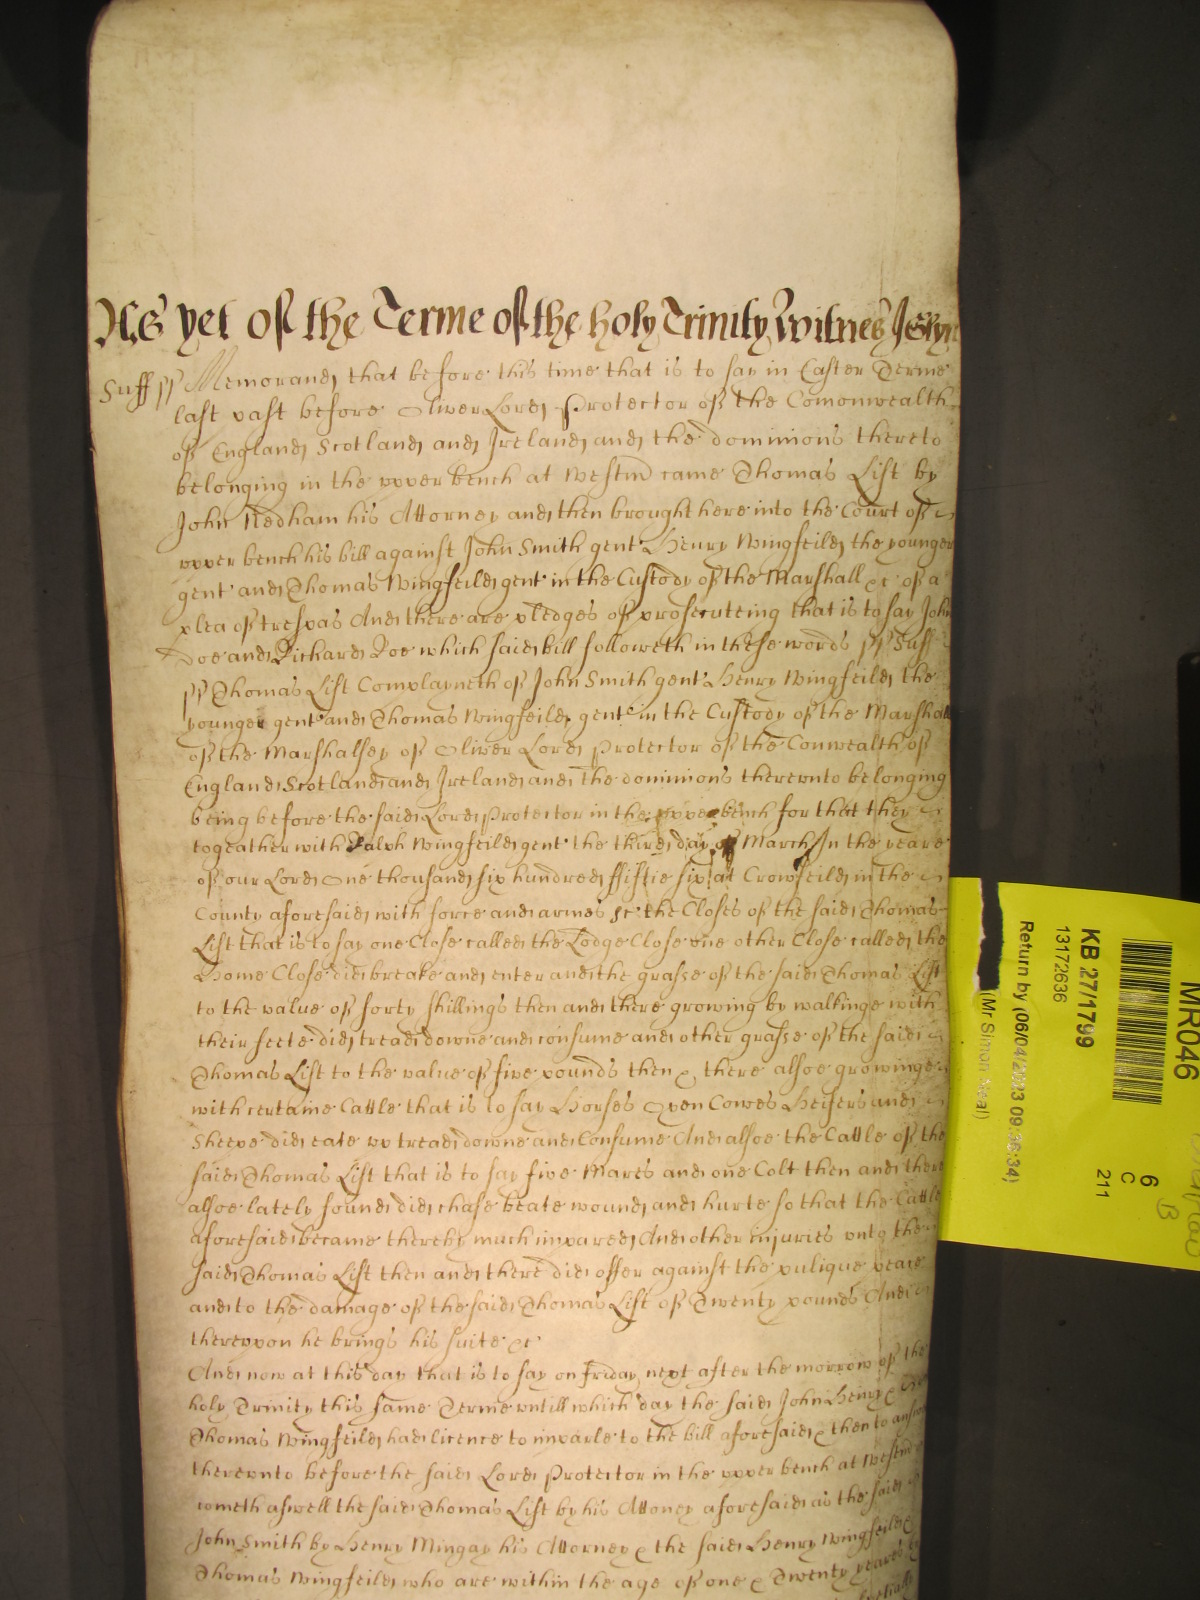 As yet of the Terme of the holy Trinity Witnes
Suff ss Memorand that before this time that is to say in Easter Terme
last past before Oliver Lord Protector of the Comonwealth
of England Scotland and Ireland and the dominions thereto
belonging in the upper bench at Westm came Thomas List by
John Nedham his Attorney and then brought here into the Court of
upper bench his bill against John Smith gent Henry Wingfeild the younger
gent and Thomas Wingfeild gent in the Custody of the Marshall &c of a
plea of trespas And there are pledges of prosecuteing that is to say John
Doe and Richard Roe which said bill followeth in these words ss Suff
ss Thomas List Complayneth of John Smith gent Henry Wingfeild the
younger gent and Thomas Wingfeild gent in the Custody of the Marshall
of the Marshalsey of Oliver Lord Protector of the Comwealth of
England Scotland and Ireland and the dominions thereunto belonging
being before the said Lord Protector in the upper bench for that they
togeather with Ralph Wingfeild gent the third day of March In the yeare
of our Lord One thousand six hundred fiftie six at Crowfeild in the
County aforesaid with force and armes &c the Closes of the said Thomas
List that is to say one Close called the Lodge Close one other Close called the
Home Close did breake and enter and the grasse of the said Thomas List
to the value of forty shillings then and there growing by walkinge with
their feete did tread downe and consume and other grasse of the said
Thomas List to the value of five pounds then & there alsoe growinge
with certaine Cattle that is to say Horses Oxen Cowes Heifers and
Sheepe did eate up tread downe and Consume And alsoe the Cattle of the
said Thomas List that is to say five Mares and one Colt then and there
alsoe lately found did chase beate wound and hurte so that the Cattle
aforesaid became thereby much impared And other injuries unto the
said Thomas List then and there did offer against the publique peace
and to the damage of the said Thomas List of Twenty pounds And
thereupon he brings his suite &c
And now at this day that is to say on Friday next after the morrow of the
holy Trinity this same Terme untill which day the said John Henry &
Thomas Wingfeild had licence to imparle to the bill aforesaid & then to answer
thereunto before the said Lord Protector in the upper bench at Westm
cometh aswell the said Thomas List by his Attorney aforesaid as the said
John Smith by Henry Mingay his Attorney & the said Henry Wingfeild &
Thomas Wingfeild who are within the age of one & Twenty yeares
MR046
KB 27/1799
13172636
Return by (06/04/2023 09:36:34)
(Mr Simon Neal)
6
C
211